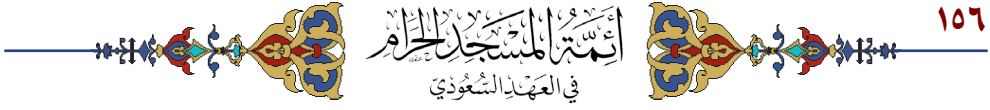 ١٥٦
أَئِمَّةُ المَسْجِدِ الحَرَامِ
في العَهْدِ السُّعُوْدِيّ